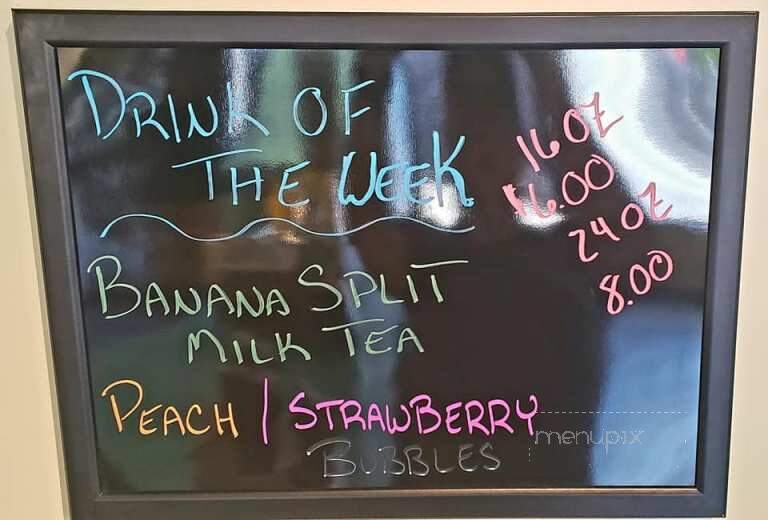 DRINK OF
THE WEEK
16 OZ
$6.00
24 OZ
8.00
BANANA SPLIT
MILK TEA
PEACH / STRAWBERRY
BUBBLES
menupix